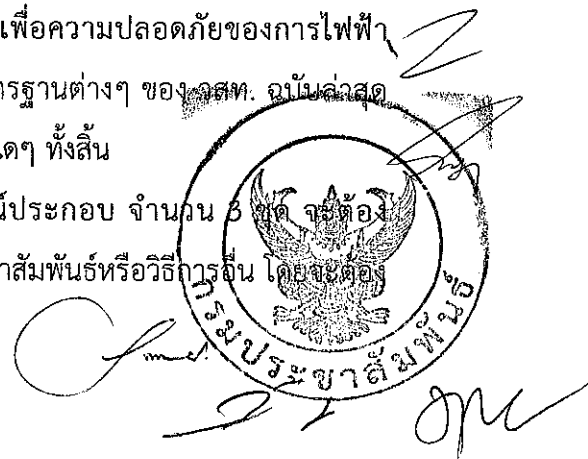 เพื่อความปลอดภัยของการไฟฟ้า
ตรฐานต่างๆ ของ วสท. ฉบับล่าสุด
ดๆ ทั้งสิ้น
ประกอบ จำนวน 3 ชุด จะต้อง
าสัมพันธ์หรือวิธีการอื่น โดยจะต้อง
กรมประชาสัมพันธ์